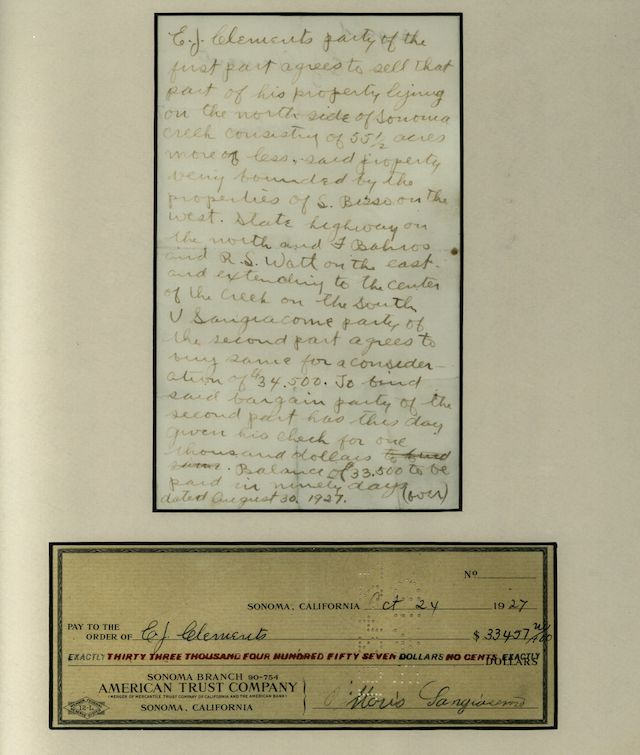 E.J. Clements party of the
first part agrees to sell that
part of his property lying
on the north side of Sonoma
Creek consisting of 55 1/2 acres
more or less. said property
being bounded by the
properties of S. Bisso on the
west. State highway on
the north and
and R.S. Watt on the east.
and extending to the center
of the creek on the South
V Sangiacomo party of
the second part agrees to
buy same for a consider-
ation of $34,500. To bind
said bargain party of the
second part has this day
given his check for one
thousand dollars to bind
same. Balance of 33.500 to be
paid in ninety days
dated August 30. 1927. (over)
No
SONOMA, CALIFORNIA Oct 24 1927
PAY TO THE
ORDER OF E.J. Clements $33457 no/100
EXACTLY THIRTY THREE THOUSAND FOUR HUNDRED FIFTY SEVEN DOLLARS NO CENTS EXACTLY
DOLLARS
SONOMA BRANCH 90-754
AMERICAN TRUST COMPANY
(MERGER OF MERCANTILE TRUST COMPANY OF CALIFORNIA AND THE AMERICAN BANK)
SONOMA, CALIFORNIA
Sangiacomo